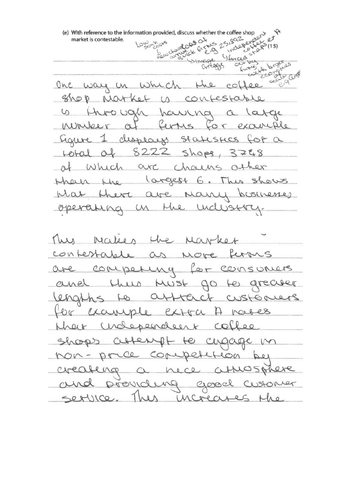 (e) With reference to the information provided, discuss whether the coffee shop
market is contestable.
(15)
One way in which the coffee
shop market is contestable
is through having a large
number of firms for example
figure 1 displays statistics for a
total of 5222 shops, 3728
of which are chains other
than the largest 6. This shows
that there are many businesses
operating in the industry.
This makes the market
contestable as more firms
are competing for consumers
and thus must go to greater
lengths to attract customers
for example extra A notes
that independent coffee
shops attempt to engage in
non-price competition by
creating a nice atmosphere
and providing good customer
service. This increases the